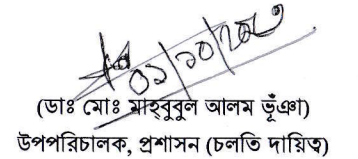 ০১/১০/২০
(ডাঃ মোঃ মাহবুবুল আলম ভূঁঞা)
উপপরিচালক, প্রশাসন (চলতি দায়িত্ব)